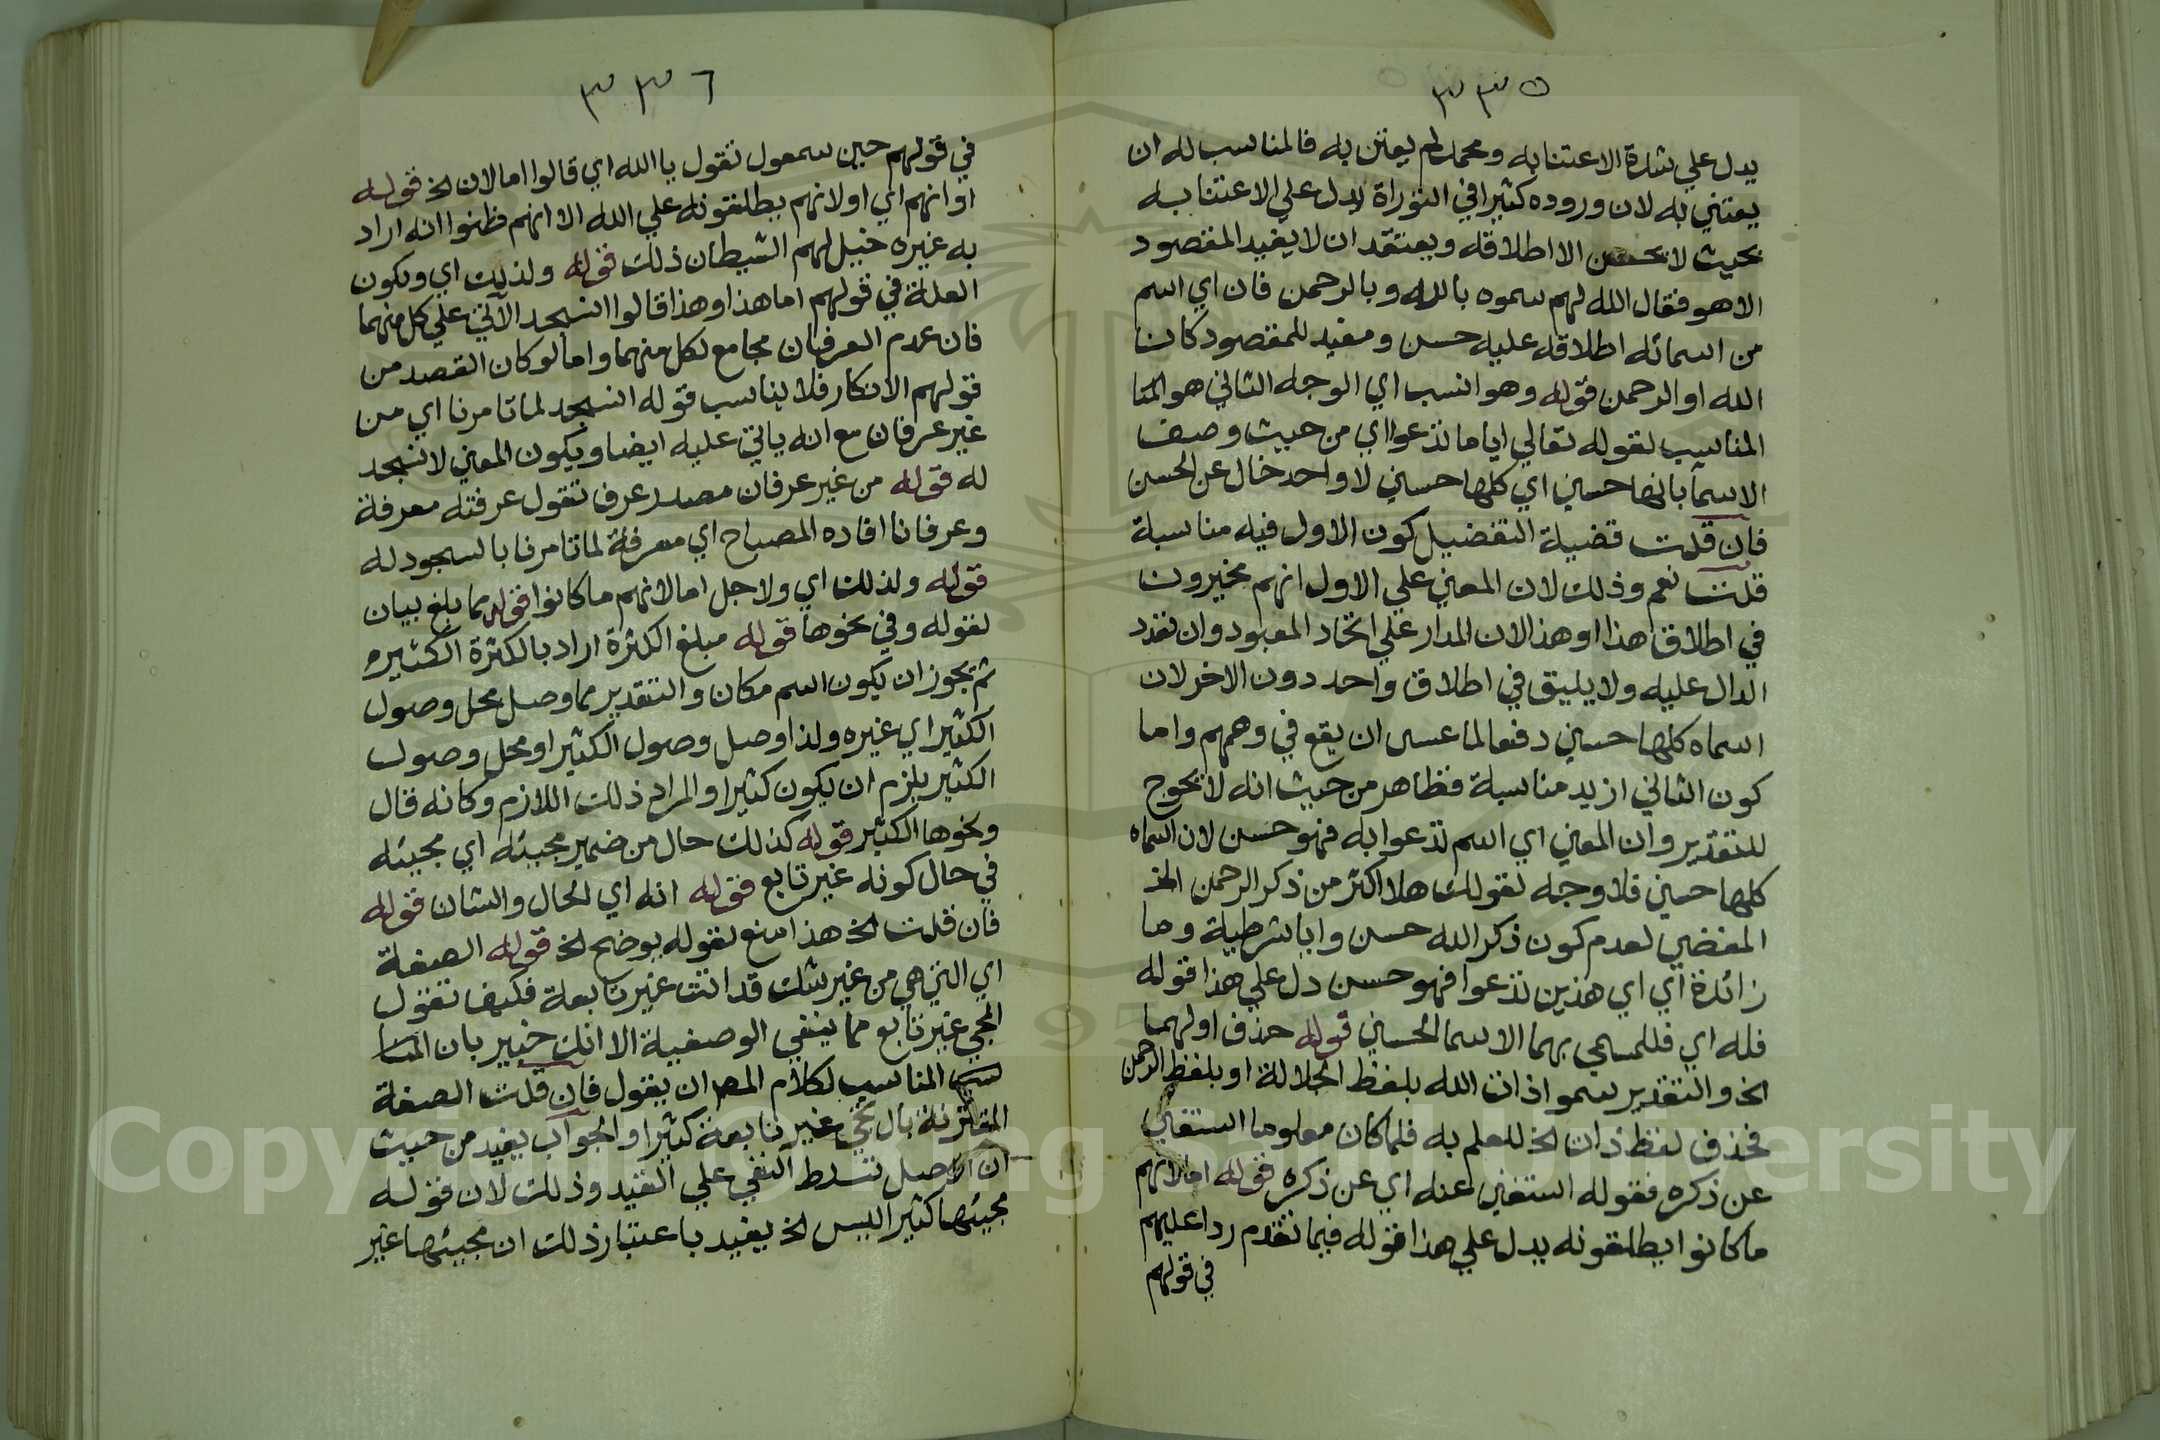 ٣٣٥
يدل علي شدة الاعتنا به ومحمد لم يعتن به فالمناسب له ان
يعتني به لان وروده كثيرا في التوراة يدل علي الاعتنا به
بحيث لا يحسن الا اطلاقه ويعتقد ان لا يفيد المقصود
الا هو فقال الله لهم سموه بالله وبالرحمن فان اي اسم
من اسمائه اطلاقه عليه حسن ومفيد للمقصود كان
الله او الرحمن قوله وهو انسب اي الوجه الثاني هو المنا
المناسب لقوله تعالي اياما تدعوا اي من حيث وصف
الاسما بانها حسني اي كلها حسني لا واحد خال عن الحسن
فان قلت قضية التفضيل كون الاول فيه مناسبة
قلت نعم وذلك لان المعني علي الاول انهم مخيرون
في اطلاق هذا او هذا لان المدار علي اتحاد المعبود وان تعدد
الدال عليه ولا يليق في اطلاق واحد دون الاخر لان
اسماه كلها حسني دفعا لما عسي ان يقع في وهمهم واما
كون الثاني ازيد مناسبة فظاهر من حيث انه لا يحوج
للتقدير وان المعني اي اسم تدعوا به فهو حسن لان اسماه
كلها حسني فلا وجه لقولك هلا اكثر من ذكر الرحمن الخ
المفضي لعدم كون ذكر الله حسن وايا شرطية وما
زائدة اي اي هذين تدعوا فهو حسن دل علي هذا قوله
فله اي فللمسمي بهما الاسما الحسني قوله حذف اولهما
الخ والتقدير سموا ذات الله بلفظ الجلالة او بلفظ الرحمن
فحذف لفظ ذات الخ للعلم به فلما كان معلوما استغني
عن ذكره فقوله استغني عنه اي عن ذكره قوله اما لانهم
ما كانوا يطلقونه يدل علي هذا قوله فيما تقدم ردا عليهم
في قولهم
٣٣٦
في قولهم حين سمعوه تقول يا الله اي قالوا اما لان الخ قوله
او انهم اي او لانهم يطلقونه علي الله الا انهم ظنوا انه اراد
به غيره خيل لهم الشيطان ذلك قوله ولذلك اي ويكون
العلة في قولهم اما هذا او هذا قالوا انسجد الآتي علي كل منهما
فان عدم العرفان مجامع لكل منهما واما لو كان القصد من
قولهم الانكار فلا يناسب قوله انسجد لما تامرنا اي من
غير عرفان مع انه ياتي عليه ايضا ويكون المعني لا نسجد
له قوله من غير عرفان مصدر عرف تقول عرفته معرفة
وعرفانا افاده المصباح اي معرفة لما تامرنا بالسجود له
قوله ولذلك اي ولاجل اما لانهم ما كانوا قوله مما بلغ بيان
لقوله وفي نحوها قوله مبلغ الكثرة اراد بالكثرة الكثير
ثم يجوز ان يكون اسم مكان والتقدير مما وصل محل وصول
الكثير اي غيره ولذا وصل وصول الكثير او محل وصول
الكثير يلزم ان يكون كثيرا والمراد ذلك اللازم وكانه قال
ونحوها الكثير قوله كذلك حال من ضمير مجيئه اي مجيئه
في حال كونه غير تابع قوله انه اي الحال والشان قوله
فان قلت الخ هذا منع لقوله يوضح الخ قوله الصفة
اي التي هي من غير شك قد اتت غير تابعة فكيف تقول
المجي غير تابع مما ينفي الوصفية الا انك خبير بان المنا
سب المناسب لكلام المص ان يقول فان قلت الصفة
المقترنة بال تجي غير تابعة كثيرا والجواب يفيد من حيث
ان الاصل تسلط النفي علي القيد وذلك لان قوله
مجيئها كثيرا ليس الخ يفيد باعتبار ذلك ان مجيئها غير
Copyright © King Saud University